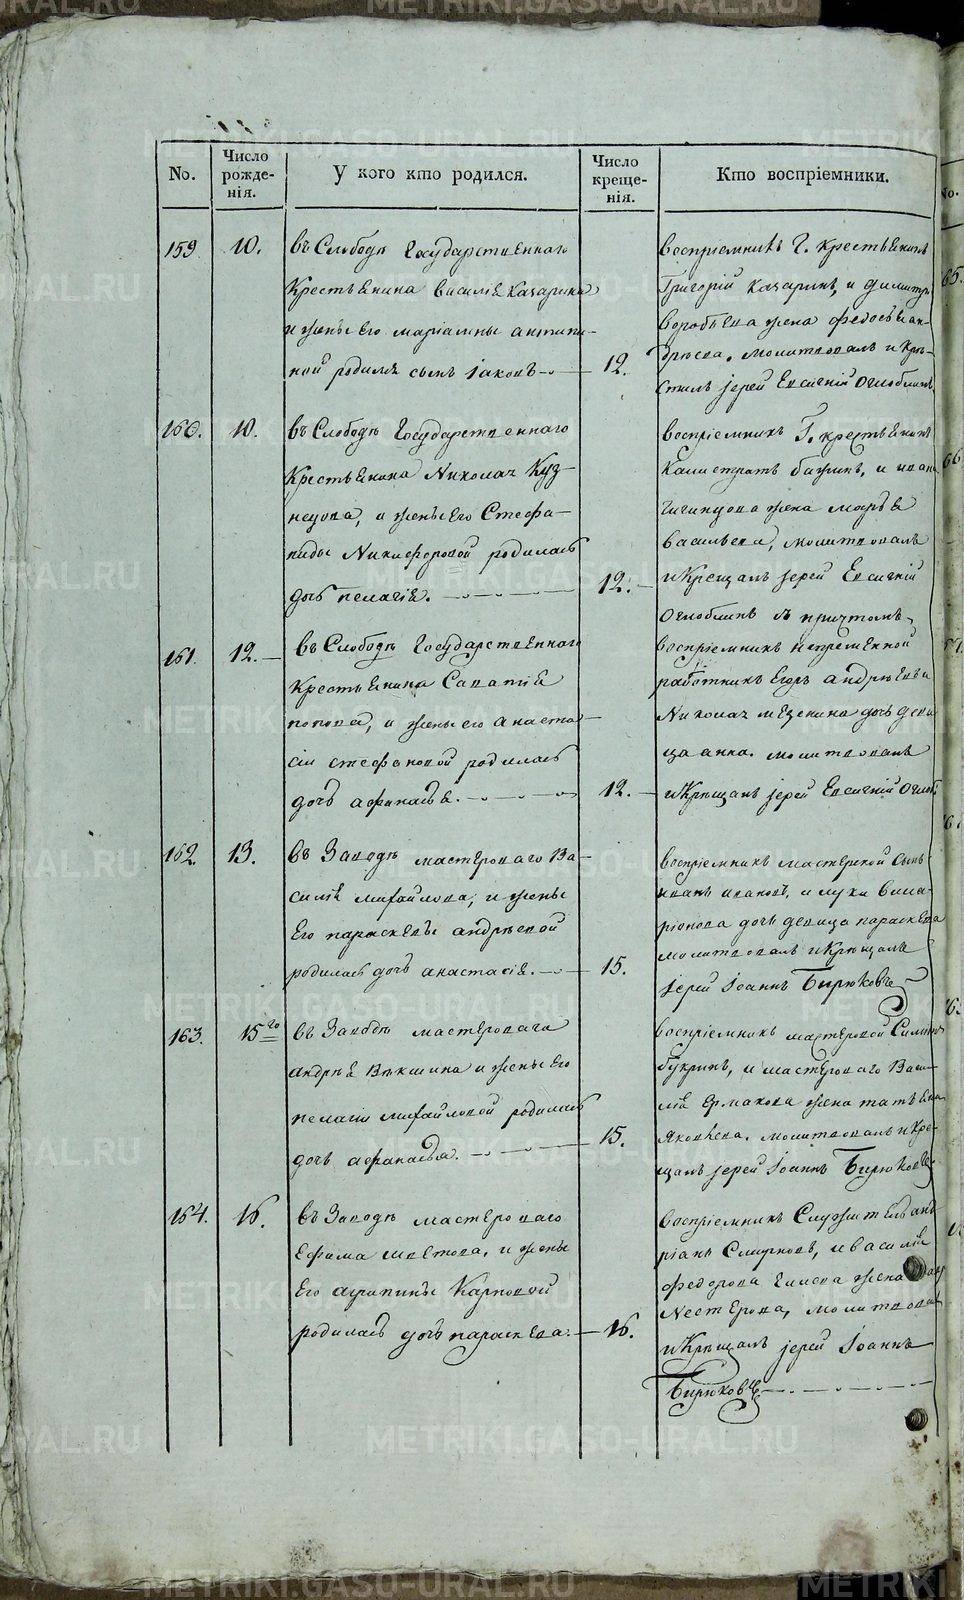 No.
Число рожде-нія.
У кого кто родился.
Число креще-нія.
Кто воспріемники.
159
10.
въ Слободѣ Государственнаго
Крестьянина Василія Качарина
и жены его маріамны антипи-
ной родился сынъ іаковъ
12.
воспріемникъ Г. крестьянинъ
Григорій Качаринъ, и димитрі
воробьева жена федосья ан-
дрѣева. молитвовалъ и кре-
стилъ іерей Евсигній Оглоблинъ
160.
10.
въ Слободѣ Государственнаго
Крестьянина Николая Куз-
нецова, и жены Его Стефа-
ниды Никифоровой родилась
дочь пелагія.
12.
воспріемникъ Г. крестьянинъ
Калистратъ и иван
жена марья
васильева, молитвовалъ
и Крещалъ іерей Евсигній
Оглоблинъ съ причтомъ
161.
12.
въ Слободѣ Государственнаго
Крестьянина Саватія
попова, и жены его анаста-
сіи стефановой родилась
дочь афанасья.
12.
воспріемникъ непременной
работникъ Егоръ андрѣевъ и
Николая дочь деви
ца анна. молитвовалъ
и Крещалъ іерей Евсигній Оглоб
162.
13.
въ Заводѣ мастероваго Ва-
силія михайлова, и жены
Его параскевы андрѣевой
родилась дочь анастасія.
15.
воспріемникъ мастерской сынъ
иванъ ивановъ, и луки
дочь девица параскева
молитвовалъ и Крещалъ
іерей Іоаннъ Бирюковъ
163.
15го
въ Заводѣ мастероваго
андрѣя Вѣкшина и жены Его
пелагіи михайловой родилась
дочь афанасья.
15.
воспріемникъ мастеровой
букринъ, и мастероваго Васи-
лія Ермакова жена татьяна
Яковлева. молитвовалъ и Кре-
щалъ іерей Іоаннъ Бирюковъ
164.
16.
въ Заводѣ мастероваго
Ефима и жены
Его агрипины Карповой
родилась дочь параскева.
16.
воспріемникъ Служитель
Смирновъ, и василія
федорова жена
Нестерова, молитвовалъ
и Крещалъ іерей Іоаннъ
Бирюковъ
METRIKI.GASO-URAL.RU